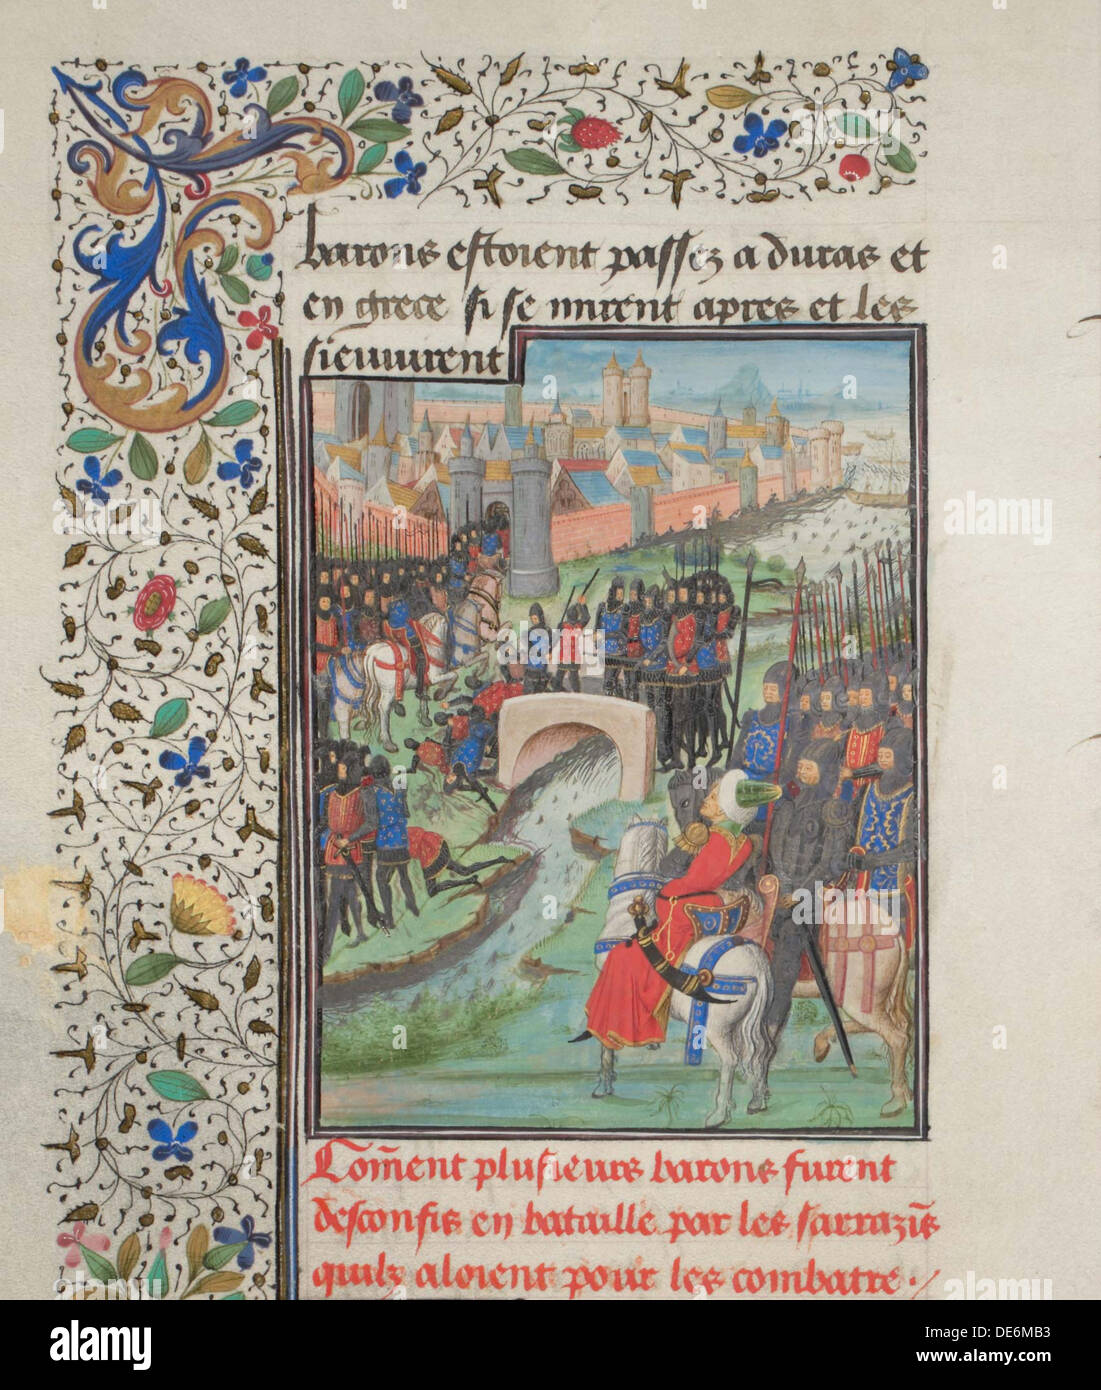 barons estoient passez a duras et
en grece si se mirent apres et les
sieuuirent
Com̄ent plusieurs barons furent
desconfis en bataille par les sarrazīs
quilz aloient pour les combatre
alamy
alamy
alamy
alamy
alamy
alamy
Image ID: DE6MB3
www.alamy.com